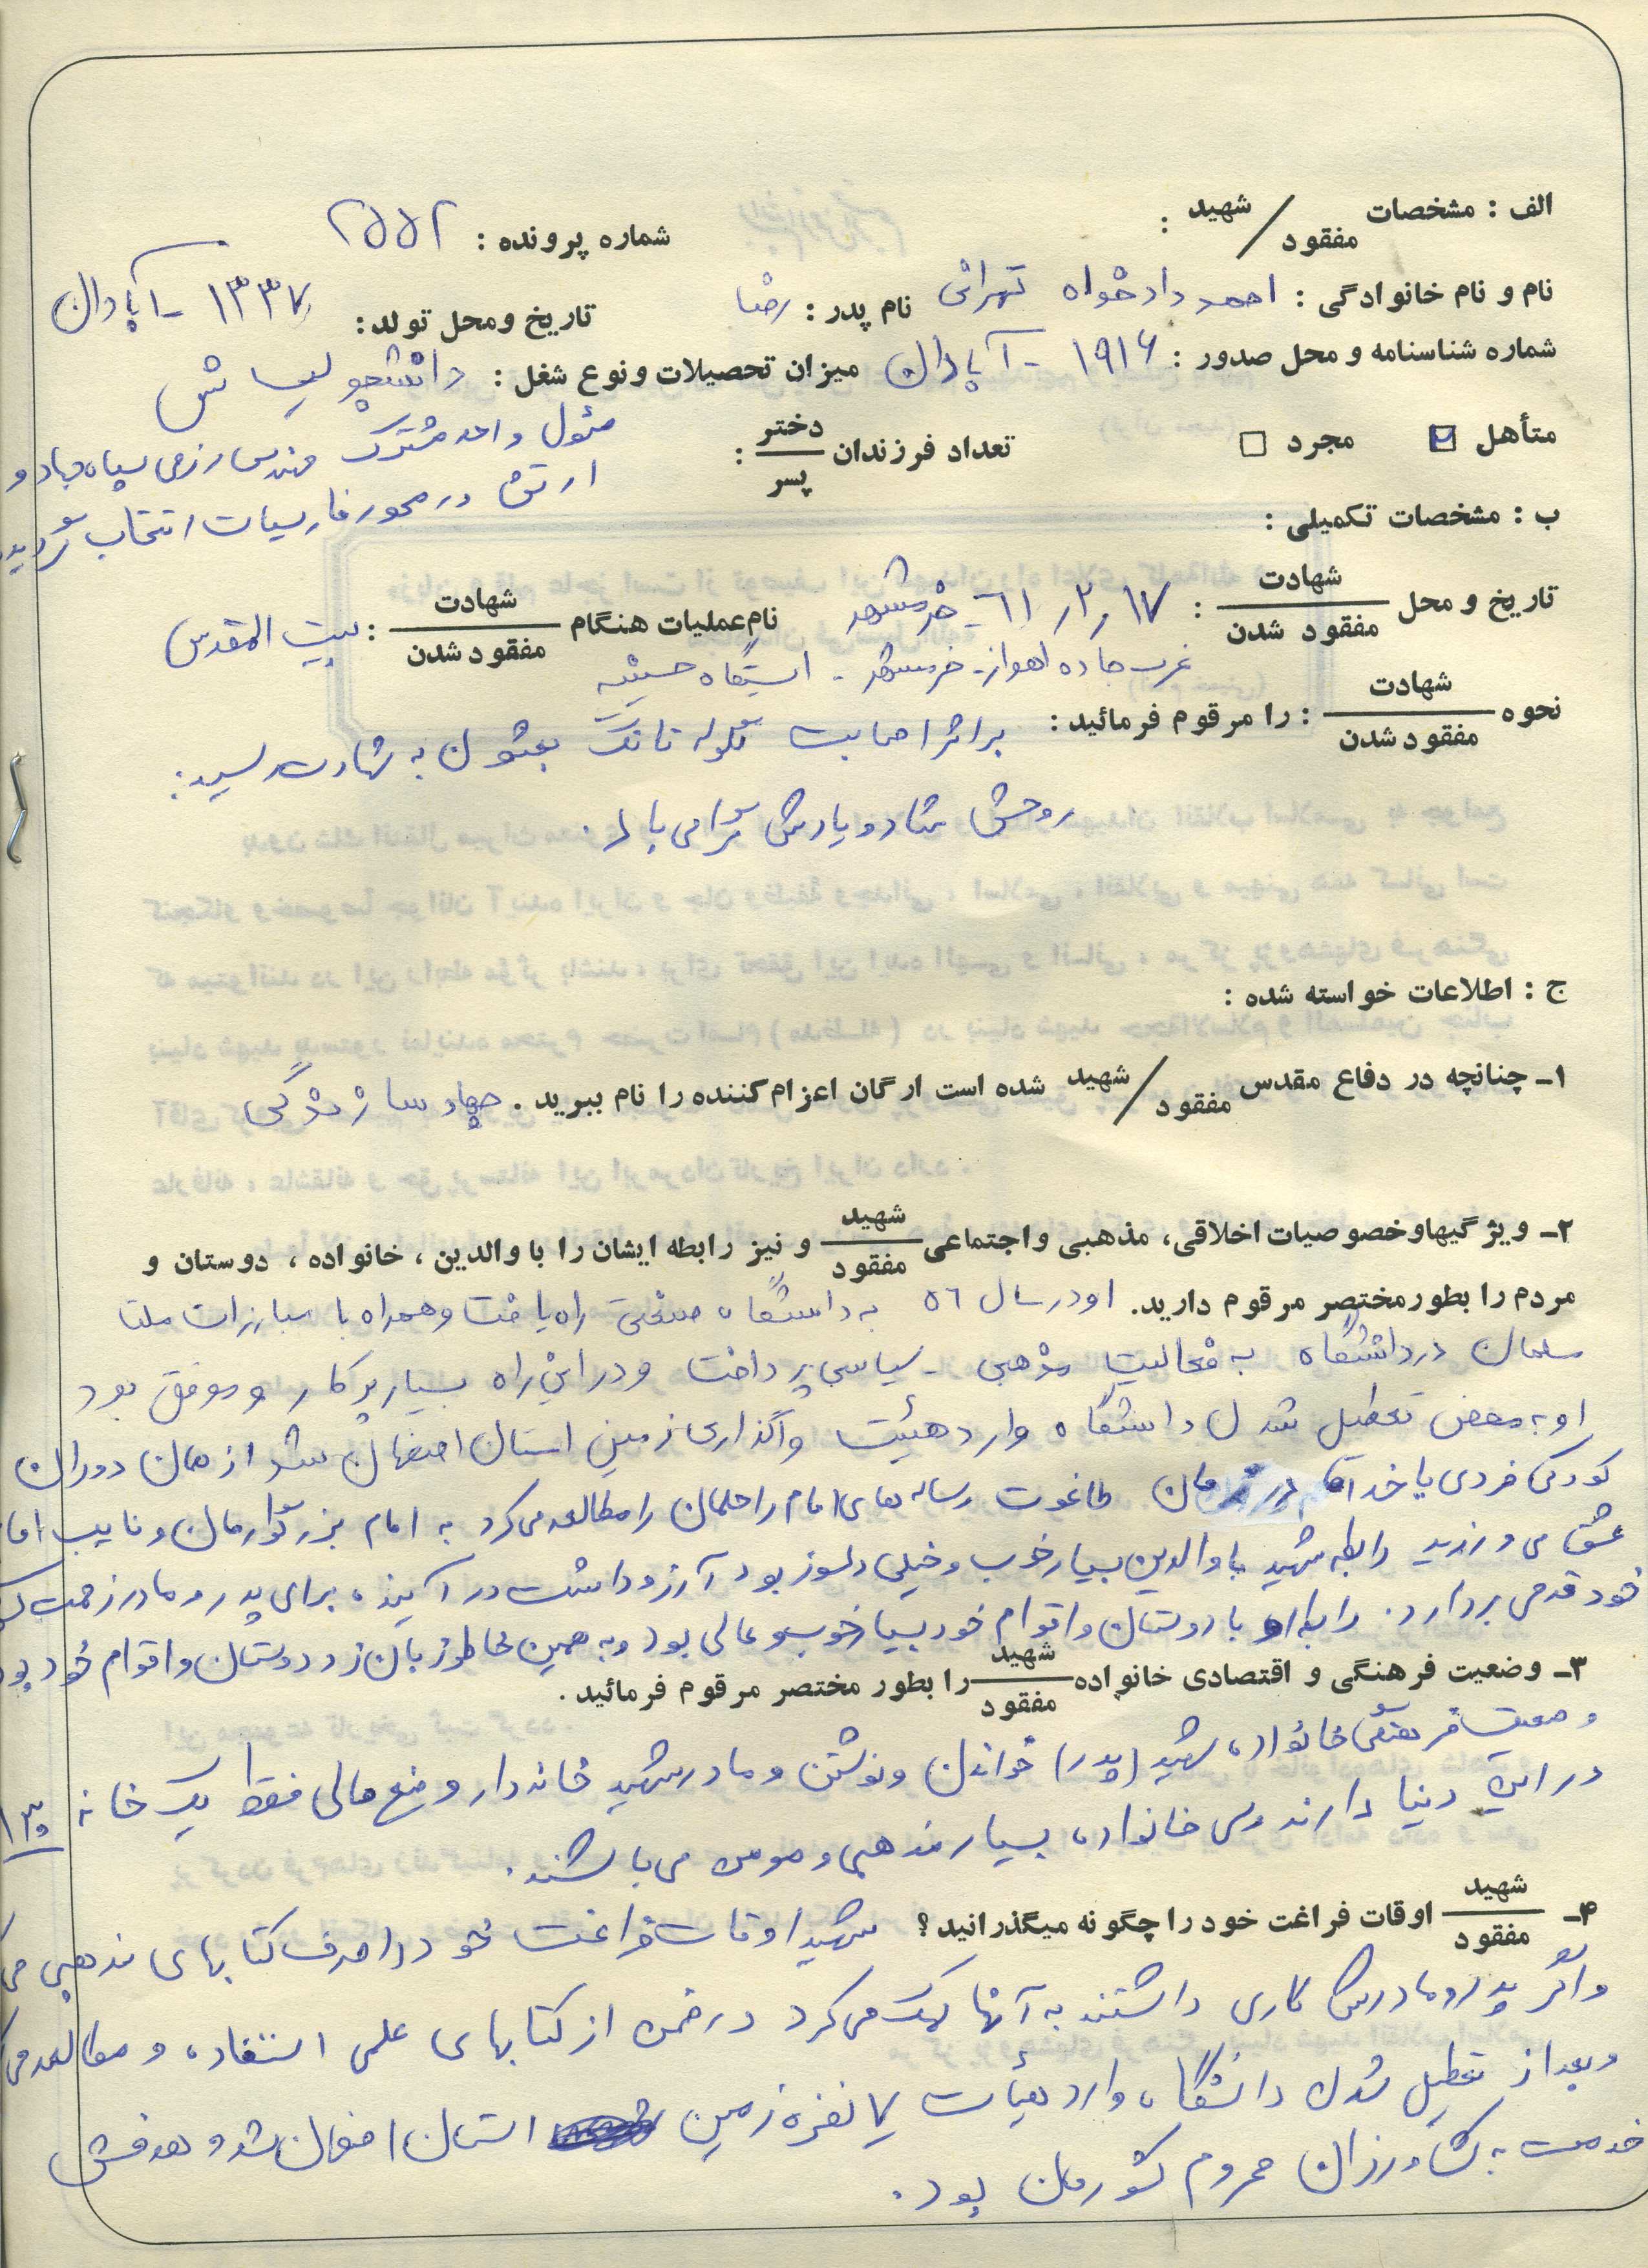 الف : مشخصات شهید / مفقود :
شماره پرونده : ۲۵۵۲
نام و نام خانوادگی : احمد دادخواه تهرانی نام پدر : رضا تاریخ ومحل تولد: ۱۳۳۷ - آبادان
شماره شناسنامه و محل صدور : ۱۹۱۶ - آبادان میزان تحصیلات ونوع شغل : دانشجو لیسانس
متأهل مجرد تعداد فرزندان دختر / پسر :
مسئول واحد مشترک مهندسی رزمی سپاه جهاد و
ارتش در محور فارسیات انتخاب گردید
ب : مشخصات تکمیلی :
تاریخ و محل شهادت / مفقود شدن : ۶۱/۲/۱۷ - خرمشهر نام عملیات هنگام شهادت / مفقود شدن : بیت المقدس
غرب جاده اهواز - خرمشهر - ایستگاه حسینیه
نحوه شهادت / مفقود شدن : را مرقوم فرمائید : بر اثر اصابت گلوله تانک بعثیون به شهادت رسید :
روحش شاد و یادش گرامی باد .
ج : اطلاعات خواسته شده :
۱ـ چنانچه در دفاع مقدس شهید / مفقود شده است ارگان اعزام کننده را نام ببرید . جهاد سازندگی
۲ـ ویژگیهاوخصوصیات اخلاقی، مذهبی واجتماعی شهید / مفقود و نیز رابطه ایشان را با والدین ، خانواده ، دوستان و
مردم را بطورمختصر مرقوم دارید. او در سال ۵۶ به دانشگاه صنعتی راه یافت و همراه با مبارزات ملت
مسلمان در دانشگاه به فعالیت مذهبی - سیاسی پرداخت و در این راه بسیار پر کار و موفق بود
او به محض تعطیل شدن دانشگاه وارد هیئت واگذاری زمین استان اصفهان شد از همان دوران
کودکی فردی با خدا زمان طاغوت رساله های امام راحلمان را مطالعه می کرد به امام بزرگوارمان و نایب
عشق می ورزید رابطه شهید با والدین بسیار خوب و خیلی دلسوز بود آرزو داشت در آینده برای پدر و مادر زحمت
خود قدمی بردارد . رابطه او با دوستان و اقوام خود بسیار خوب و عالی بود و به همین خاطر زبان زد دوستان و اقوام خود
۳ـ وضعیت فرهنگی و اقتصادی خانواده شهید / مفقود را بطور مختصر مرقوم فرمائید .
وضعیت فرهنگی خانواده شهید (پدر) خواندن و نوشتن و مادر شهید خانه دار و منبع مالی فقط یک خانه
در این دنیا دارند ولی خانواده بسیار مذهبی و مومن می باشند .
۴ـ شهید / مفقود اوقات فراغت خود را چگونه میگذرانید؟ شهید اوقات فراغت خود را صرف کتابهای مذهبی
و اگر پدر و مادرش کاری داشتند به آنها کمک می کرد در ضمن از کتابهای علمی استفاده و مطالعه
و بعد از تعطیل شدن دانشگاه وارد هیأت ۷ نفره زمین استان اصفهان شد و هدفش
خدمت به کشاورزان محروم کشورمان بود .